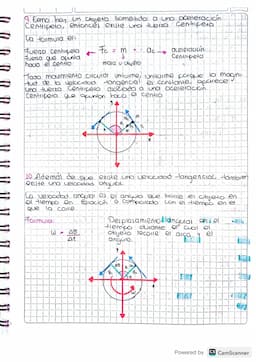 9 Como hay un objeto sometido a una aceleración
centrípeta, entonces existe una fuerza centrípeta
La formula es:
fuerza centripeta ← Fc = m · ac → aceleración
fuerza que apunta centripeta
hacia el centro masa u objeto
Todo movimiento circular uniforme, uniforme porque la magni-
tud de la velocidad tangencial es constante, aparece
una fuerza centrípeta asociada a una aceleración
centrípeta que apuntan hacia el centro
10 Además de que existe una velocidad tangencial, también
existe una velocidad angular.
La velocidad angular es el angulo que barre el objeto en
el tiempo en relación o comparado con el tiempo en el
que la corre.
Formula: Desplazamiento angular en el
ω = Δθ tiempo durante el cual el
Δt objeto recorre el arco y el
angulo.
Powered by CS CamScanner